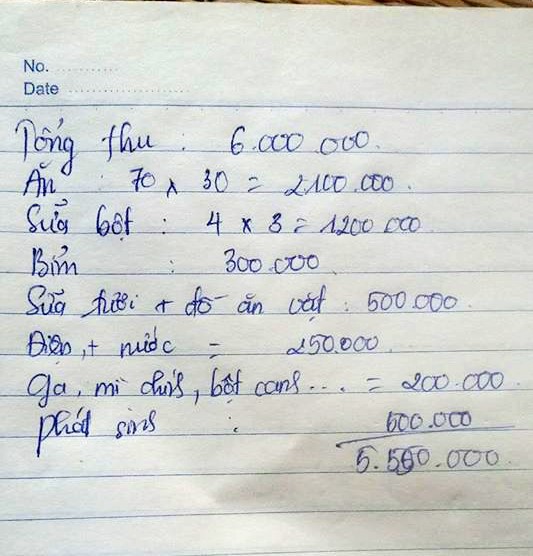 No.
Date
Tổng thu : 6.000.000.
Ăn : 70 x 30 = 2100.000.
Sữa bột : 4 x 3 = 1200 000
Bỉm : 300.000
Sữa tươi + đồ ăn vặt : 500.000.
Điện, + nước = 250.000
Ga, mì chính, bột canh... = 200.000.
Phát sinh :
5.550.000.